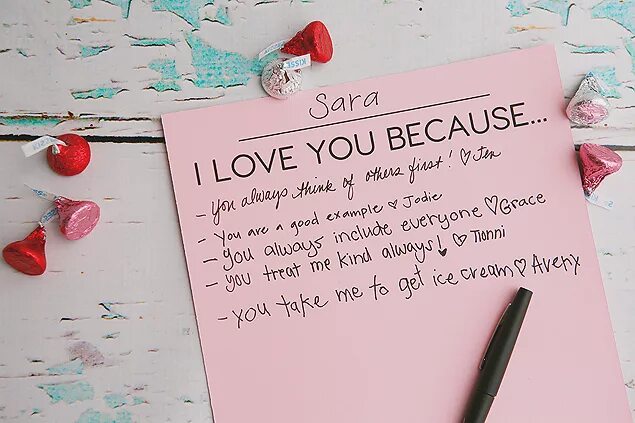 KISSES
Sara
I LOVE YOU BECAUSE...
- You always think of others first! ♡ Jen
- You are a good example ♡ Jodie
- You always include everyone ♡ Grace
- you treat me kind always! ♡ Tionni
- you take me to get ice cream ♡ Avery